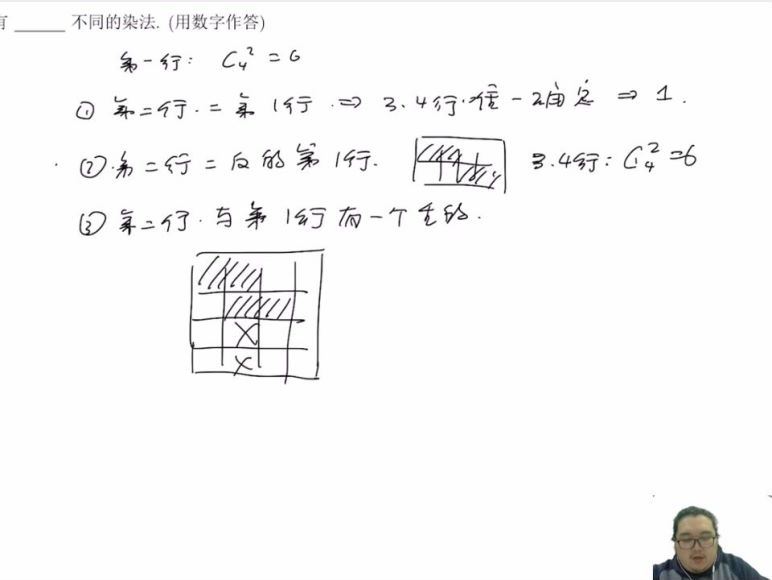 有 ______ 不同的染法. (用数字作答)
第一行: C₄² = 6
① 第二行 = 第1行 ⇒ 3.4行 唯一确定 ⇒ 1.
② 第二行 = 反的第1行. 3.4行: C₄² = 6
③ 第二行 与第1行有一个重的.
X
X